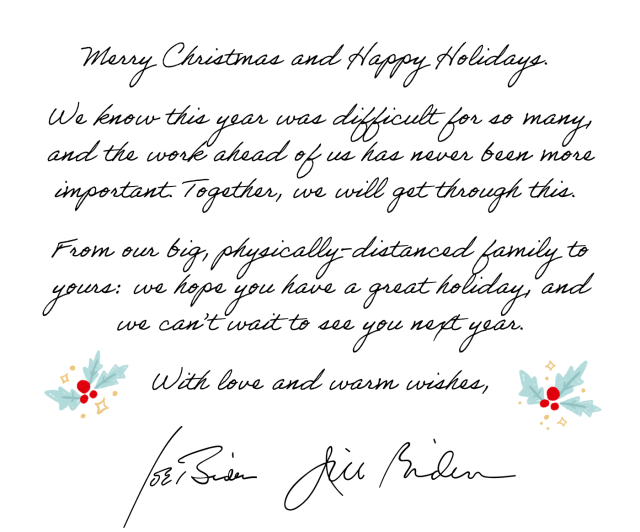 Merry Christmas and Happy Holidays.
We know this year was difficult for so many,
and the work ahead of us has never been more
important. Together, we will get through this.
From our big, physically-distanced family to
yours: we hope you have a great holiday, and
we can't wait to see you next year.
With love and warm wishes,
Joe Biden Jill Biden